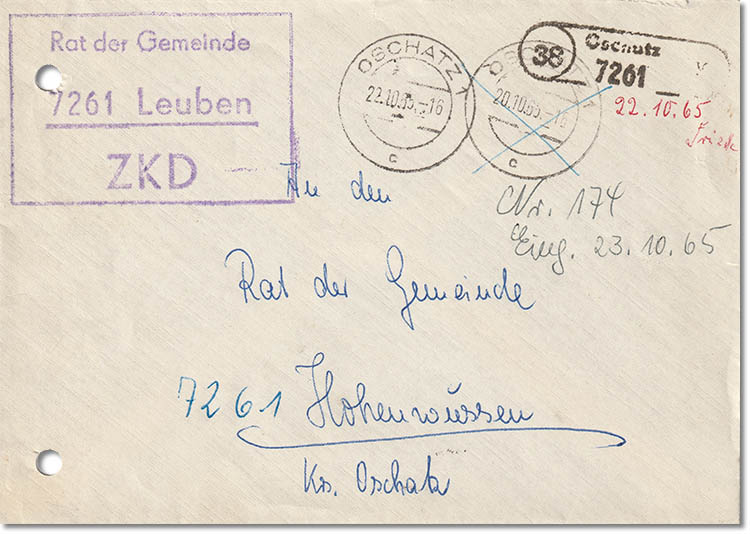 Rat der Gemeinde
7261 Leuben
ZKD
OSCHATZ 1
22.10.65.-16
c
OSCHATZ 1
20.10.65.-16
c
38
Oschatz
7261
22.10.65
Nr. 174
Eing. 23.10.65
An den
Rat der Gemeinde
7261 Hohenwussen
Krs. Oschatz